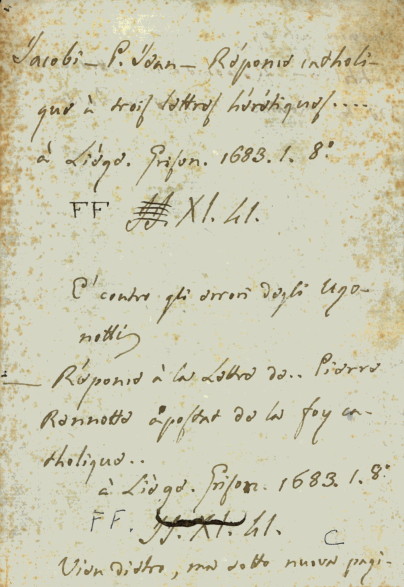 Jacobi - P. Jean - Réponse catholi-
que à trois lettres hérétiques....
à Liége. Grison. 1683. 1. 8.°
FF JJ. XI. 41.
E' contro gli errori degli Ugo-
notti
Réponse à la Lettre de.. Pierre
Rennotte apostat de la foy ca-
tholique..
à Liége. Grison. 1683. 1. 8.°
FF. JJ. XI. 41.
C
Vien dietro, ma sotto nuova pagi-